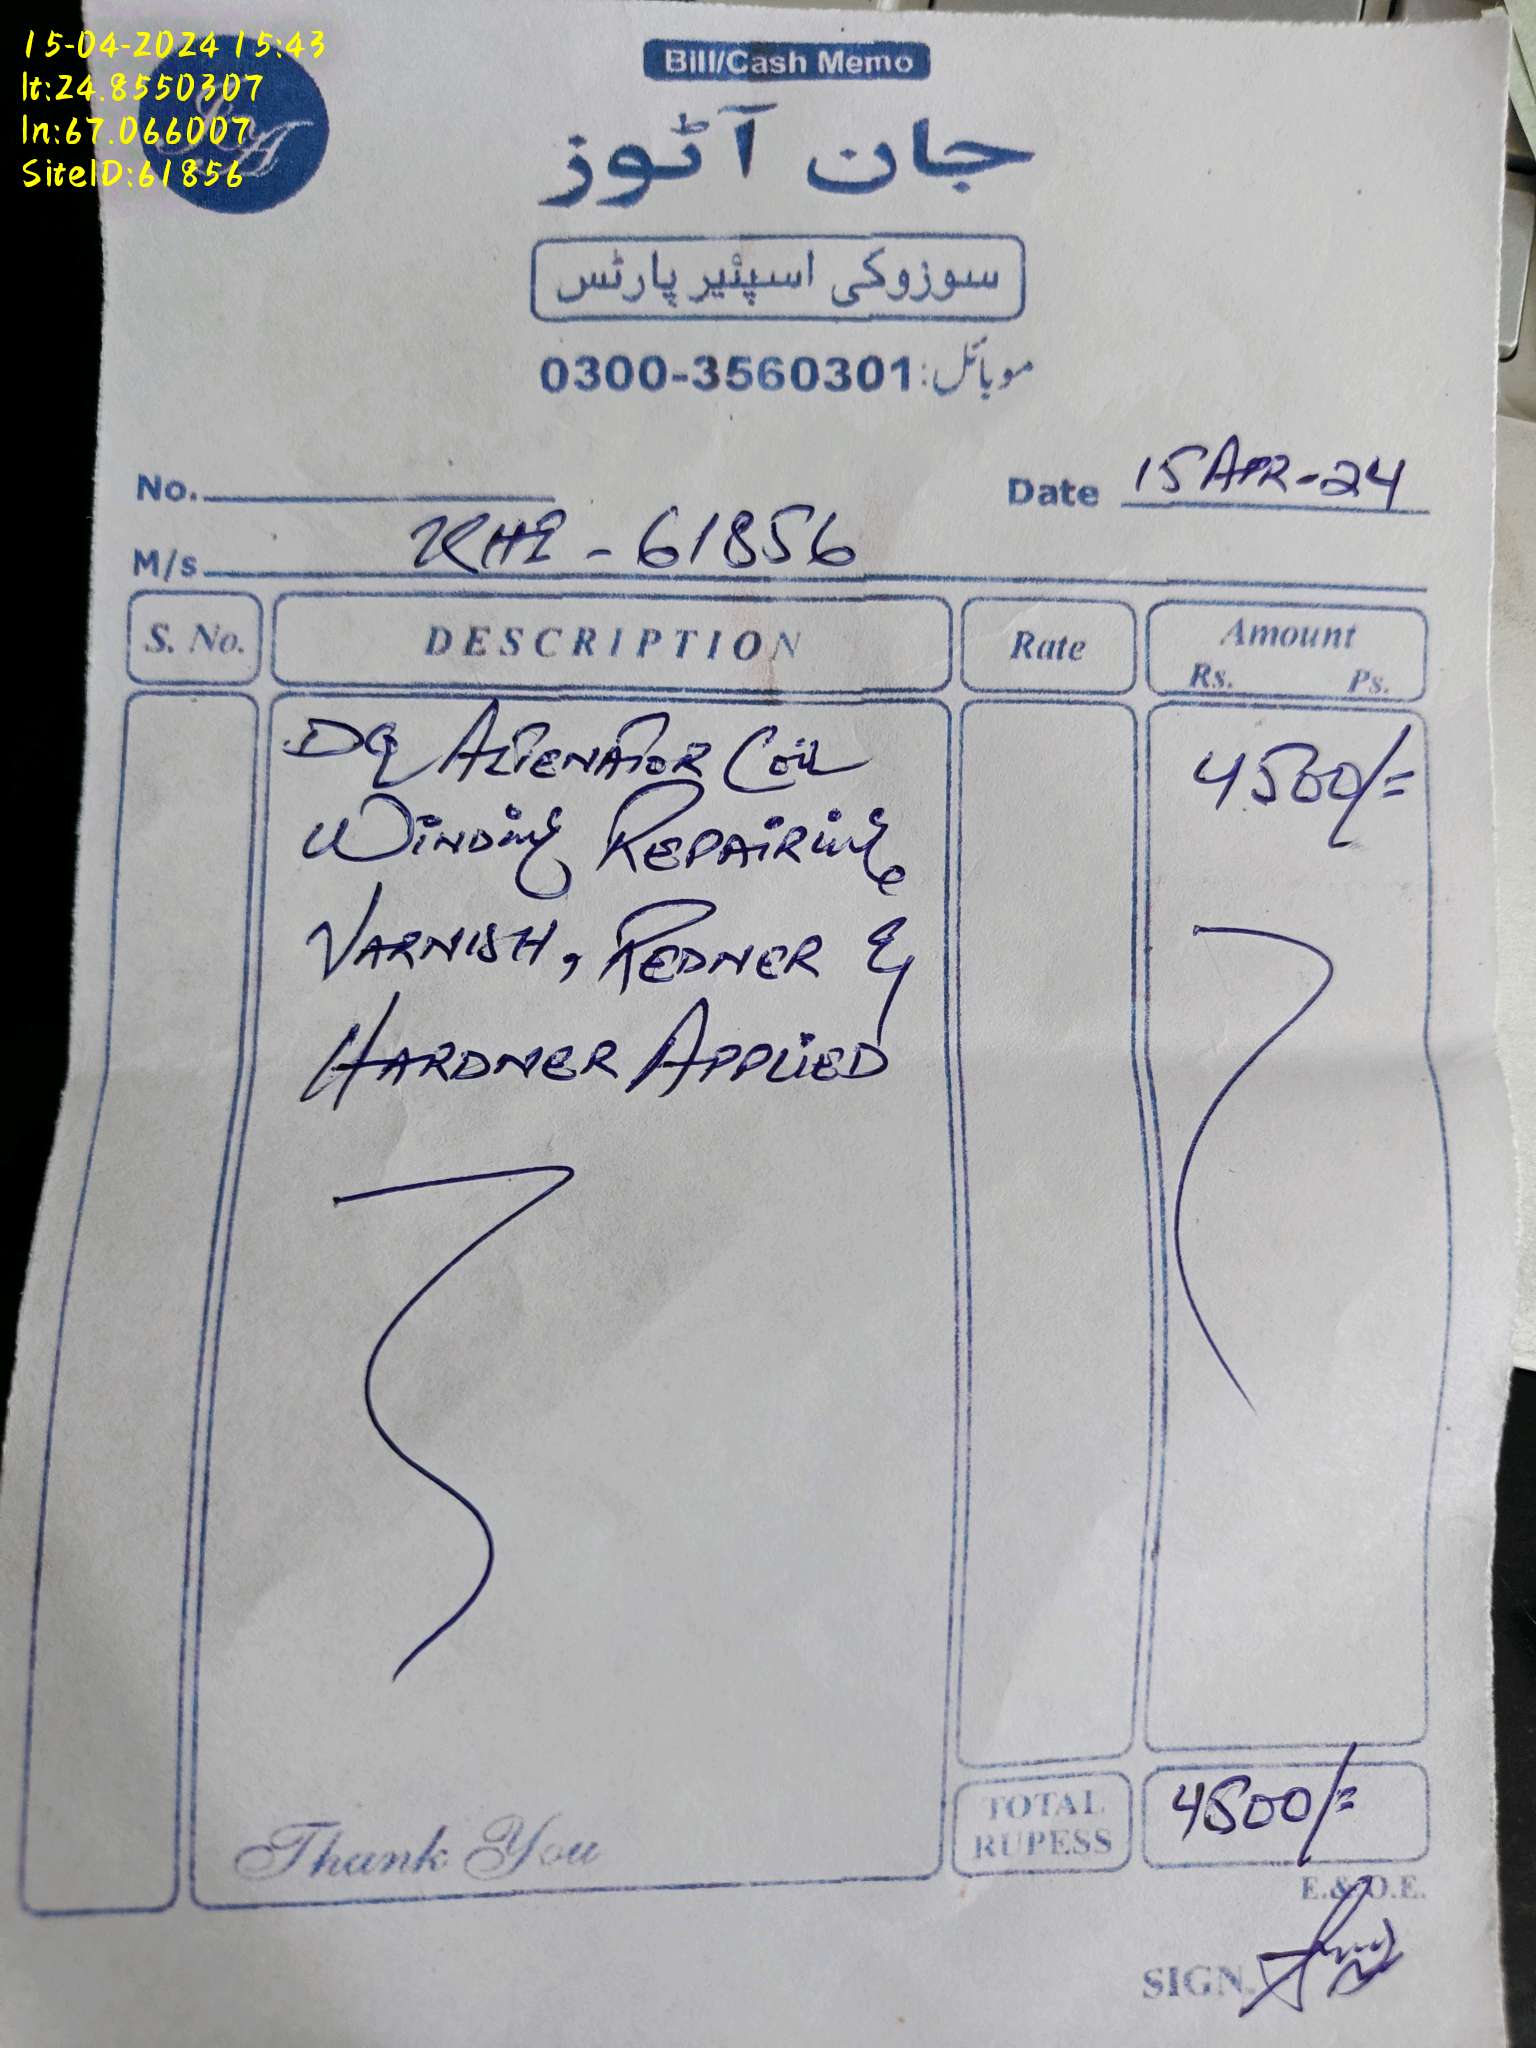 15-04-2024 15:43
lt:24.8550307
ln:67.066007
SiteID:61856
Bill/Cash Memo
جان آٹوز
سوزوکی اسپئیر پارٹس
موبائل: 0300-3560301
No.
Date 15 APR-24
M/s. KHI - 61856
S. No. DESCRIPTION Rate Amount
Rs. Ps.
DG ALTENATOR COIL 4500/=
WINDING REPAIRING
VARNISH, REDNER &
HARDNER APPLIED
Thank You
TOTAL RUPESS 4500/=
E.& O.E.
SIGN.